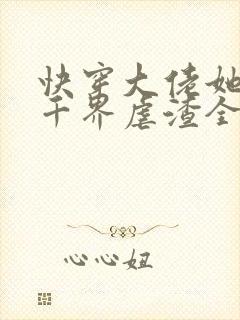 快穿大佬她
千界虐渣全
心心妞